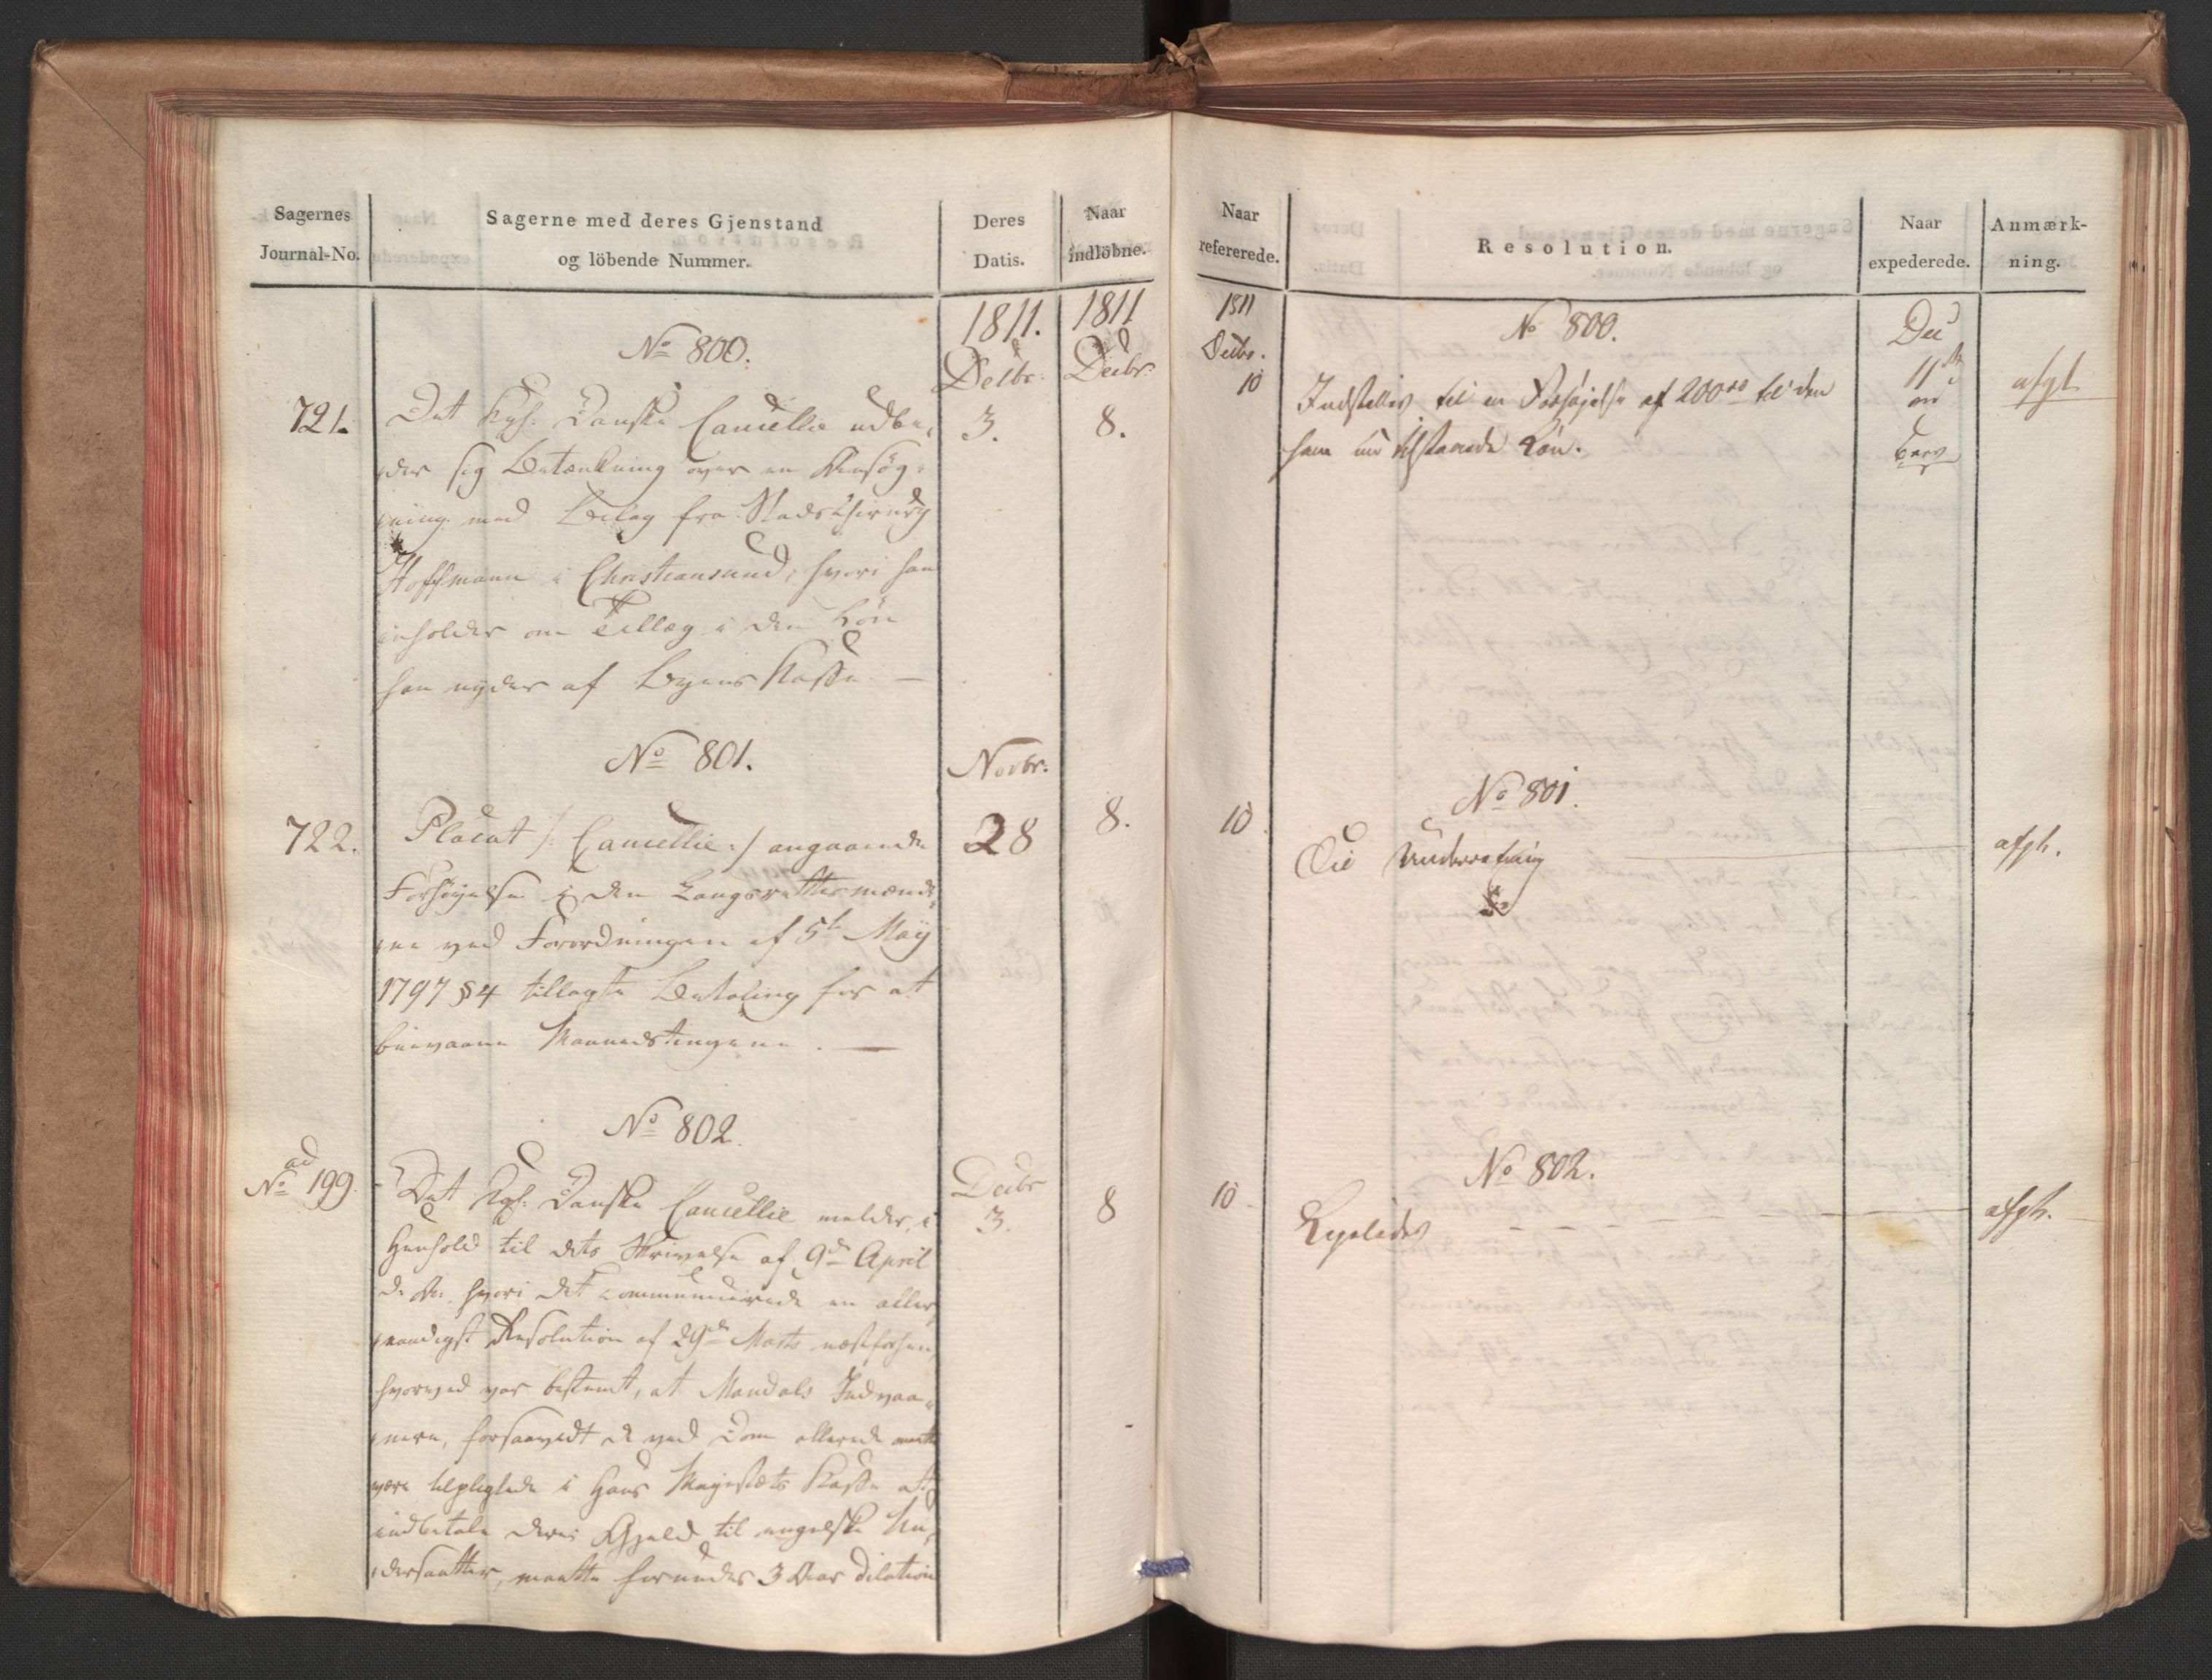 Sagernes
Journal-No.
Sagerne med deres Gjenstand
og löbende Nummer.
Deres
Datis.
Naar
indlöbne.
1811.
1811
No 800.
Decbr.
Decbr.
721.
Det Kgl. Danske Cancellie udbe-
3.
8.
der sig Betænkning over en Ansøg-
ning med Bilag fra Stadschirurg
Hoffmann i Christiansund, hvori han
anholder om Tillæg i den Løn
han nyder af Byens Kasse —
No 801.
Novbr.
722.
Placat /: Cancellie :/ angaaende
28
8.
Forhøyelse i den Laugrettesmænde-
ne ved Forordningen af 5te May
1797 § 4 tillagte Betaling for at
bievaane Maanedstingene. —
No 802.
ad
No 199.
Det Kgl. Danske Cancellie melder, i
Decbr
3.
8
Henhold til dets Skrivelse af 9de April
d. A. hvori det communicerede en aller-
naadigst Resolution af 29de Marts næstforhen,
hvorved var bestemt, at Mandals Indvaa-
nere, forsaavidt de ved Dom allerede maatte
være tilpligtede i Hans Majestæts Kasse at
indbetale deres Gjæld til engelske Un-
dersaatter, maatte forundes 3 Aars Dilation
Naar
refererede.
Resolution.
Naar
expederede.
Anmærk-
ning.
1811
Decbr.
No 800.
Dec
10
Indstilles til en Forhøjelse af 200 rd til den
11te
afgt
ham nu tilstaaede Løn.
No 801.
10
Die Underretning
afgt.
No 802.
10
Ligeledes
afgt.